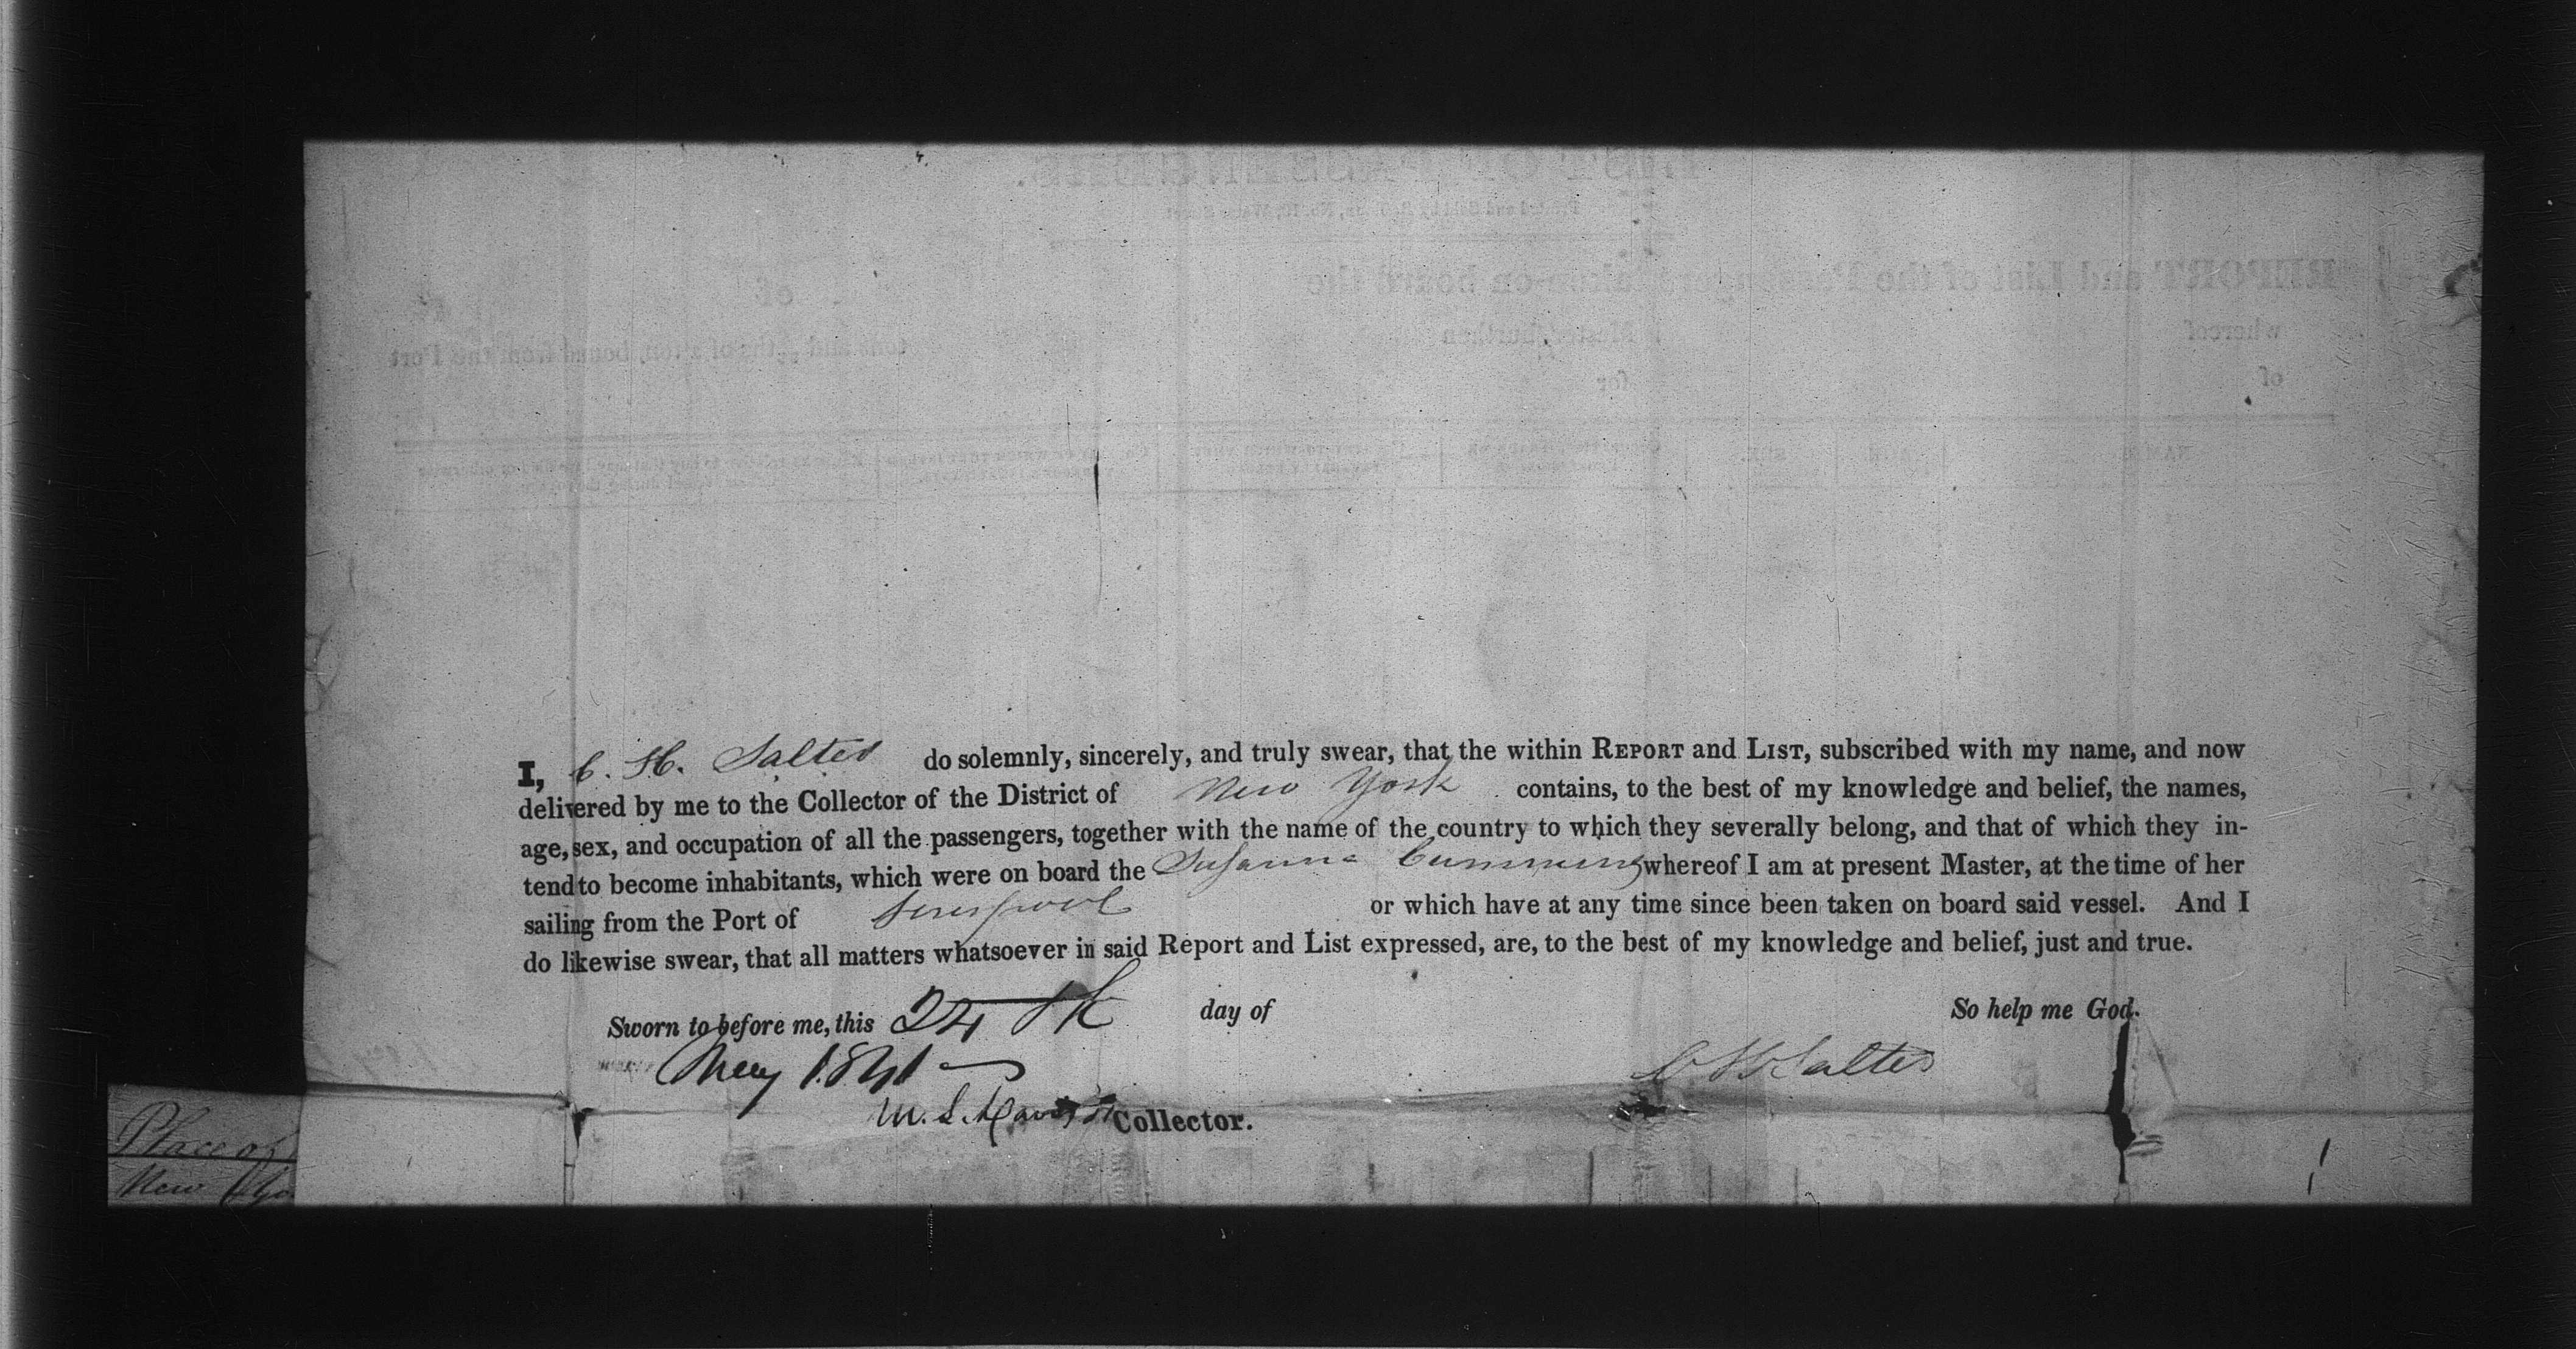 I, C. H. Salter do solemnly, sincerely, and truly swear, that the within REPORT and LIST, subscribed with my name, and now
delivered by me to the Collector of the District of New York contains, to the best of my knowledge and belief, the names,
age, sex, and occupation of all the passengers, together with the name of the country to which they severally belong, and that of which they in-
tend to become inhabitants, which were on board the Susanna Cumming whereof I am at present Master, at the time of her
sailing from the Port of Liverpool or which have at any time since been taken on board said vessel. And I
do likewise swear, that all matters whatsoever in said Report and List expressed, are, to the best of my knowledge and belief, just and true.
Sworn to before me, this 24th day of So help me God.
May 1841
C H Salter
M. L. Collector.
Place of
New Yo